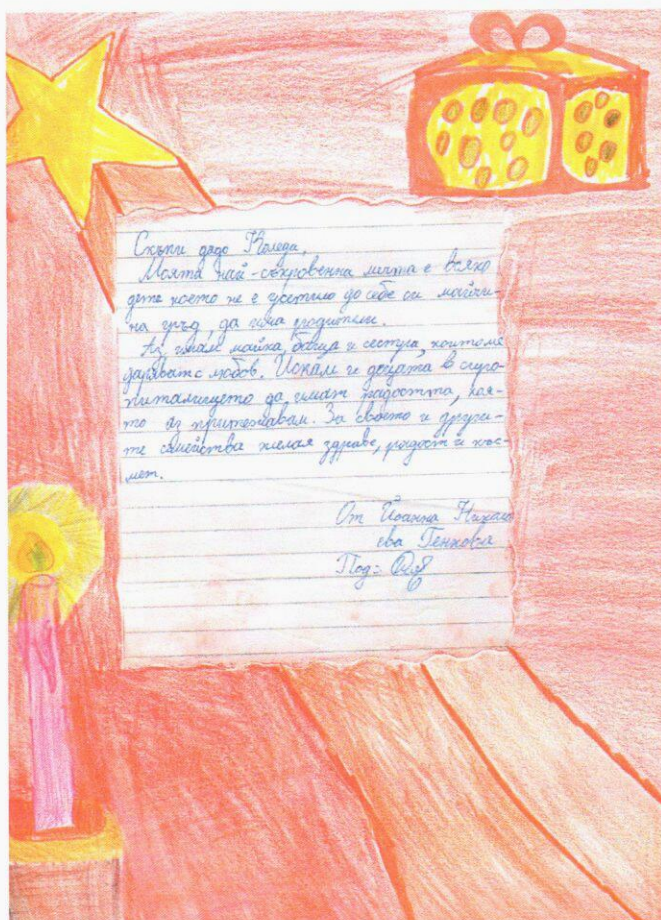 Скъпи дядо Коледа,
Моята най-съкровенна мечта е всяко
дете което не е усетило до себе си майчи-
на гръд, да има родители.
Аз имам майка, баща и сестра, които ме
даряват с любов. Искам и децата в сиро-
питалището да имат радостта, коя-
то аз притежавам. За своето и други-
те семейства желая здраве, радост и къс-
мет.
От Йоанна Никола
ева Генкова
Под: